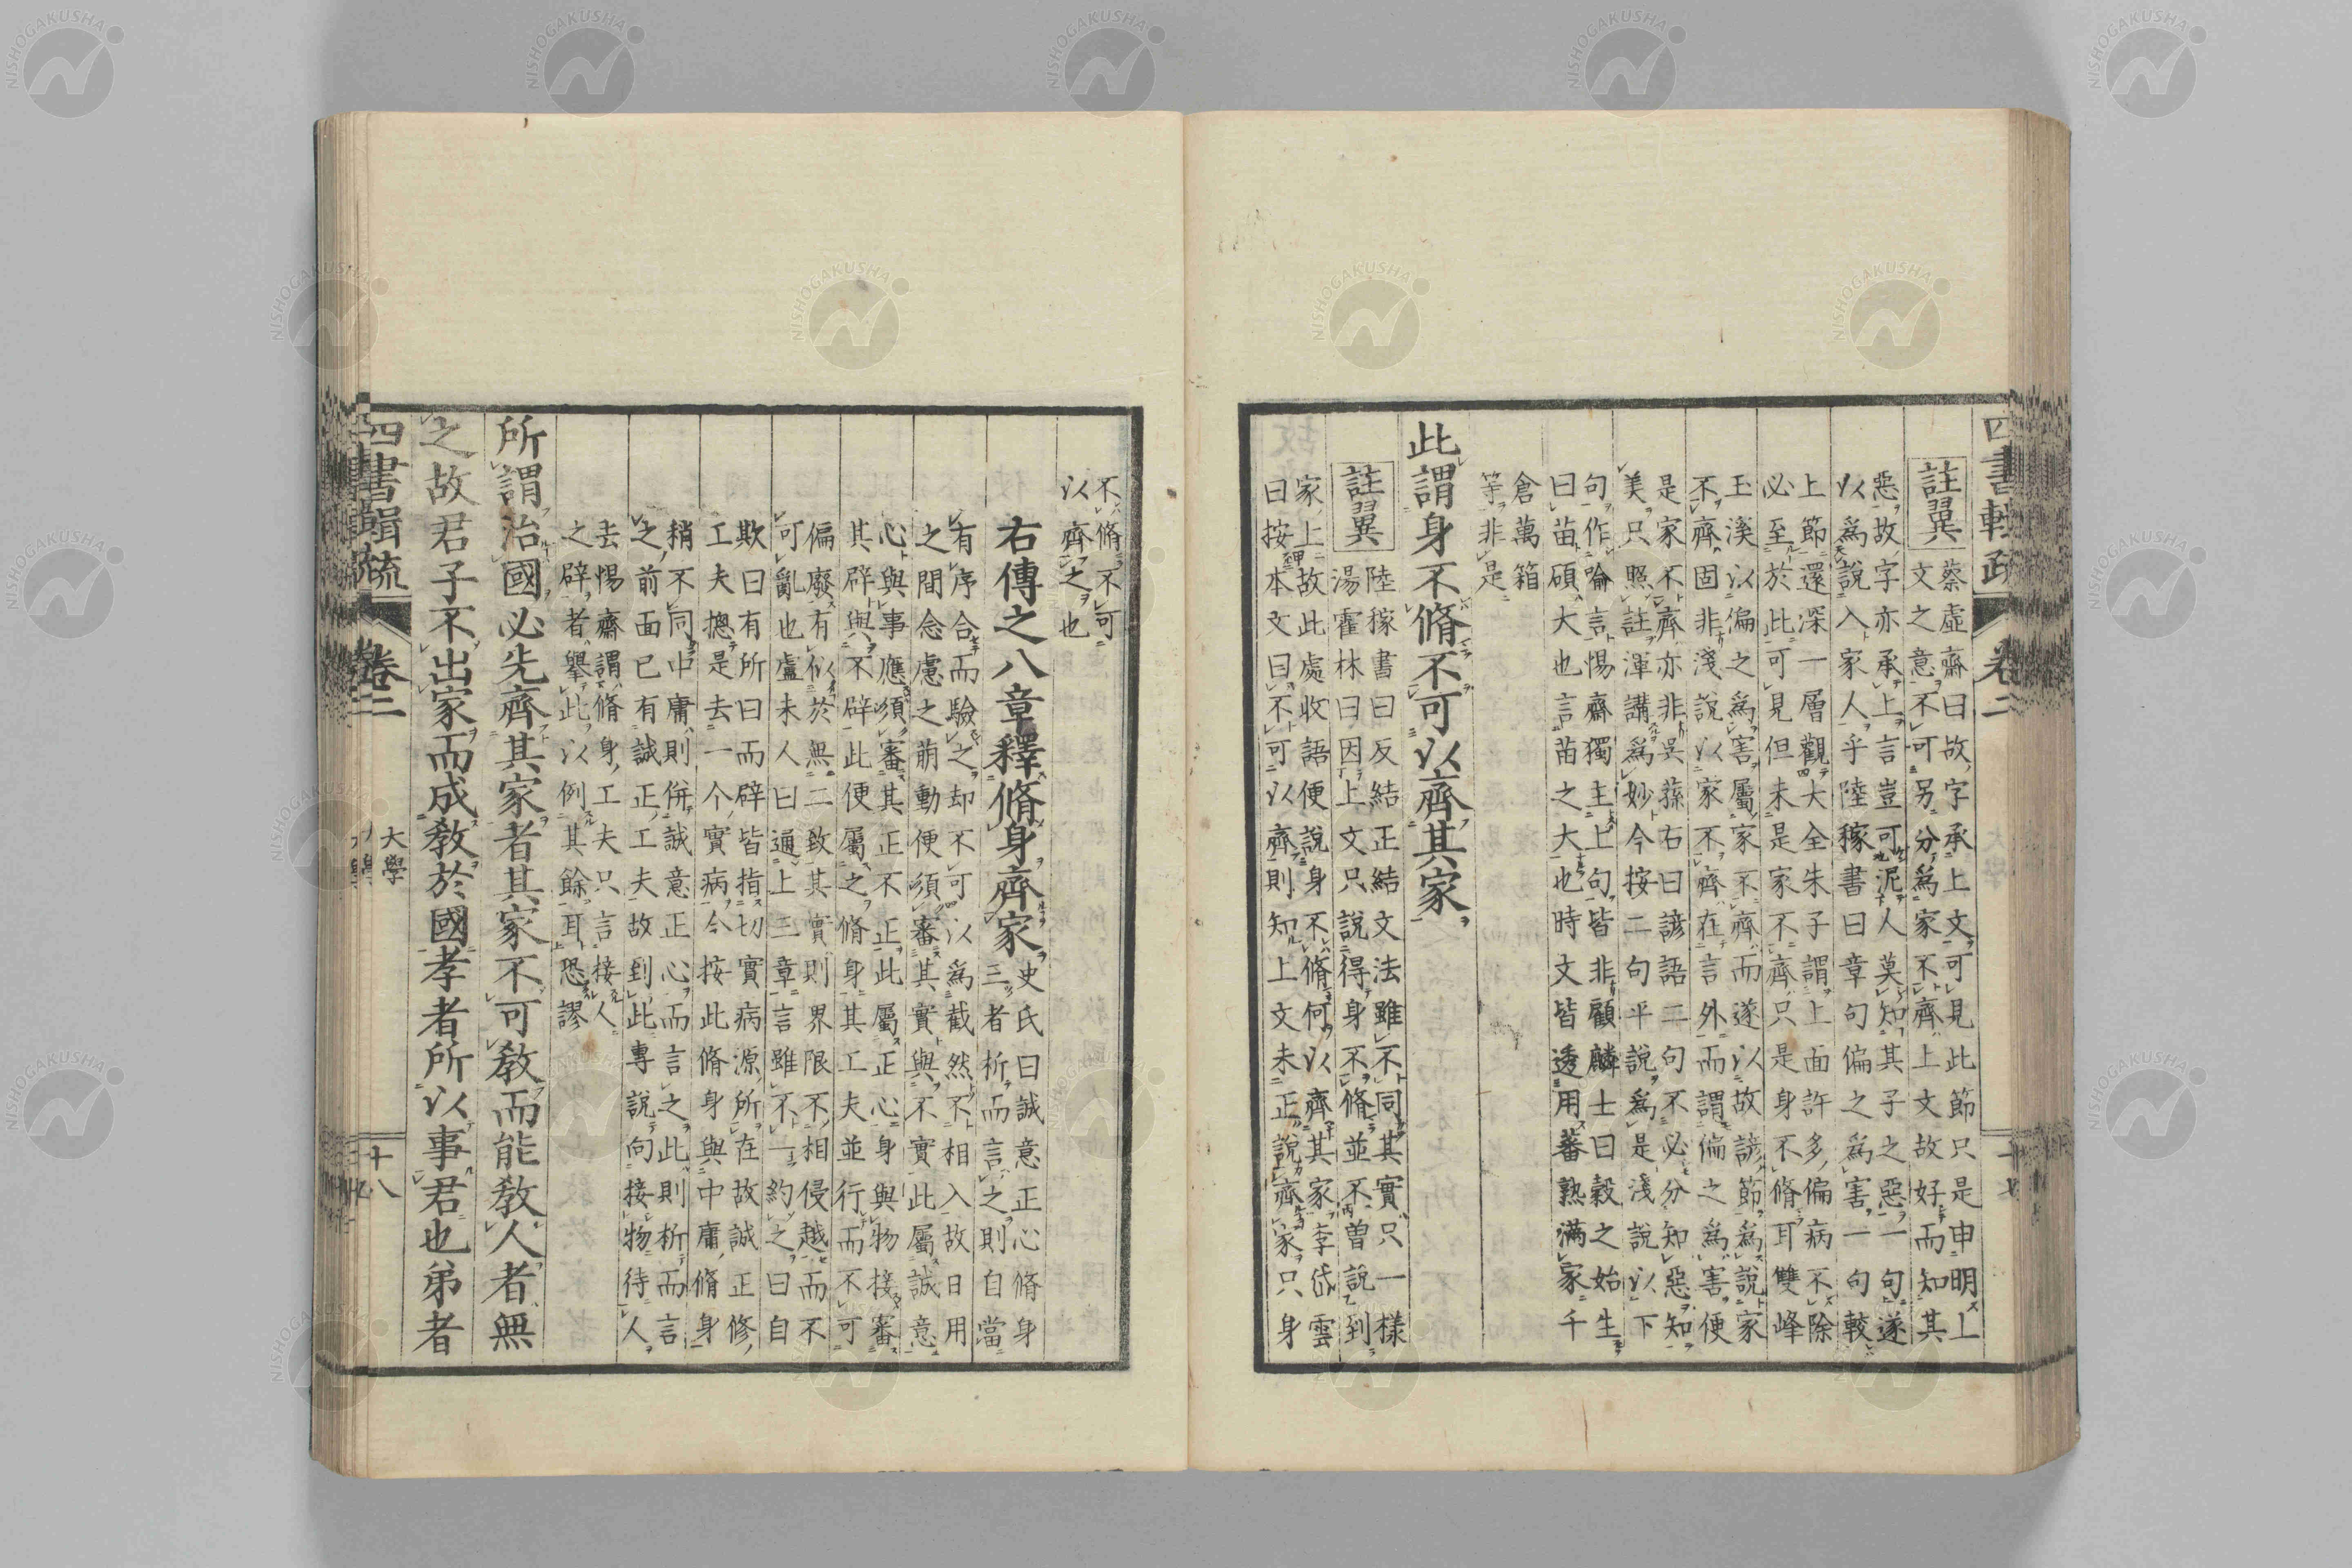 四書輯疏 卷二 十七
註翼
蔡虛齋曰故字承上文可見此節只是申明上
文之意不可另分為家不齊上文故好而知其
惡故字亦承上言豈可泥人莫知其子之惡一句遂
以為說入家人乎陸稼書曰章句偏之為害一句較
上節還深一層觀大全朱子謂上面許多偏病不除
必至於此可見但未是家不齊只是身不脩耳雙峰
玉溪以偏之為害屬家不齊而遂以故諺節為說家
不齊固非淺說以家不齊在言外而謂偏之為害便
是家不齊亦非吳蓀右曰諺語二句不必分知惡知
美只照註渾講為妙今按二句平說為是淺說以下
句作喻言惕齋獨主上句皆非顧麟士曰穀之始生
曰苗碩大也言苗之大也時文皆透用蕃熟滿家千
倉萬箱
等非是
此謂身不脩不可以齊其家
註翼
陸稼書曰反結正結文法雖不同其實只一樣
湯霍林曰因上文只說得身不脩並不曾說到
家上故此處收語便說身不脩何以齊其家李岱雲
曰按本文曰不可以齊則知上文未正說齊家只身
不脩不可
以齊之也
右傳之八章釋脩身齊家
史氏曰誠意正心脩身
三者析而言之則自當
有序合而驗之却不可以為截然不相入故日用
之間念慮之萌動便須審其實與不實此屬誠意
心與事應須審其正不正此屬正心身與物接審
其辟與不辟此便屬之脩身其工夫並行而不可
偏廢有似於無二致其實則界限不相侵越而不
可亂也盧未人曰通上三章言雖不一約之曰自
欺曰有所曰而辟皆指切實病源所在故誠正修
工夫摠是去一个實病今按此脩身與中庸脩身
稍不同中庸則併誠意正心而言之此則析而言
之前面已有誠正工夫故到此專說向接物待人
去惕齋謂脩身工夫只言接人
之辟者舉此以例其餘耳恐謬
所謂治國必先齊其家者其家不可教而能教人者無
之故君子不出家而成教於國孝者所以事君也弟者
四書輯疏 卷二 大學 十八